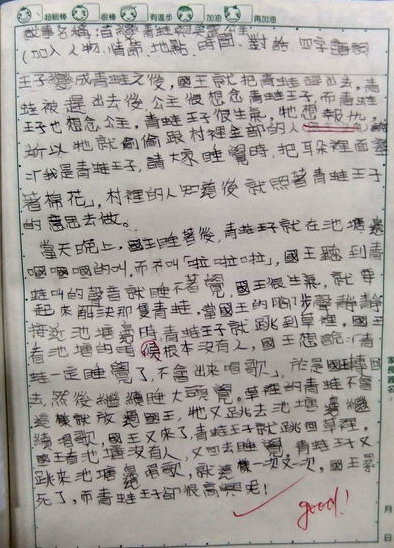 超級棒 很棒 有進步 加油 再加油
故事名稱:青蛙
(加入人物、情節、地點、時間、對話、四字語詞
王子變成青蛙之後,國王就把青蛙趕出去,青
蛙被趕出去後公主很想念青蛙王子,而青蛙
王子也想念公主,青蛙王子很生氣,牠想報仇,
所以牠就偷偷跟村裡全部的人說
「我是青蛙王子,請大家睡覺時,把耳朵裡面塞
著棉花」,村裡的人知道後就照著青蛙王子
的意思去做。
當天晚上,國王睡著後,青蛙王子就在池塘邊
嘓嘓嘓的叫,而不叫「啦啦啦」,國王聽到青
蛙叫的聲音就睡不著覺,國王很生氣,就
起來解決那隻青蛙,當國王的腳步聲靜靜
接近池塘邊時,青蛙王子就跳到草裡,國王
看池塘的時候根本沒有人,國王想說:「青
蛙一定睡覺了,不會出來唱歌」,於是國王轉回
去,然後繼續睡大頭覺。草裡的青蛙不會
這樣就放過國王,牠又跳去池塘邊繼
續唱歌,國王又來了,青蛙王子就跳回草裡,
國王看池塘沒有人,又回去睡覺,青蛙王子又
跳來池塘邊唱歌,就這樣一次又一次,國王累
死了,而青蛙王子卻很高興呢!
good!
家長簽名
月
日